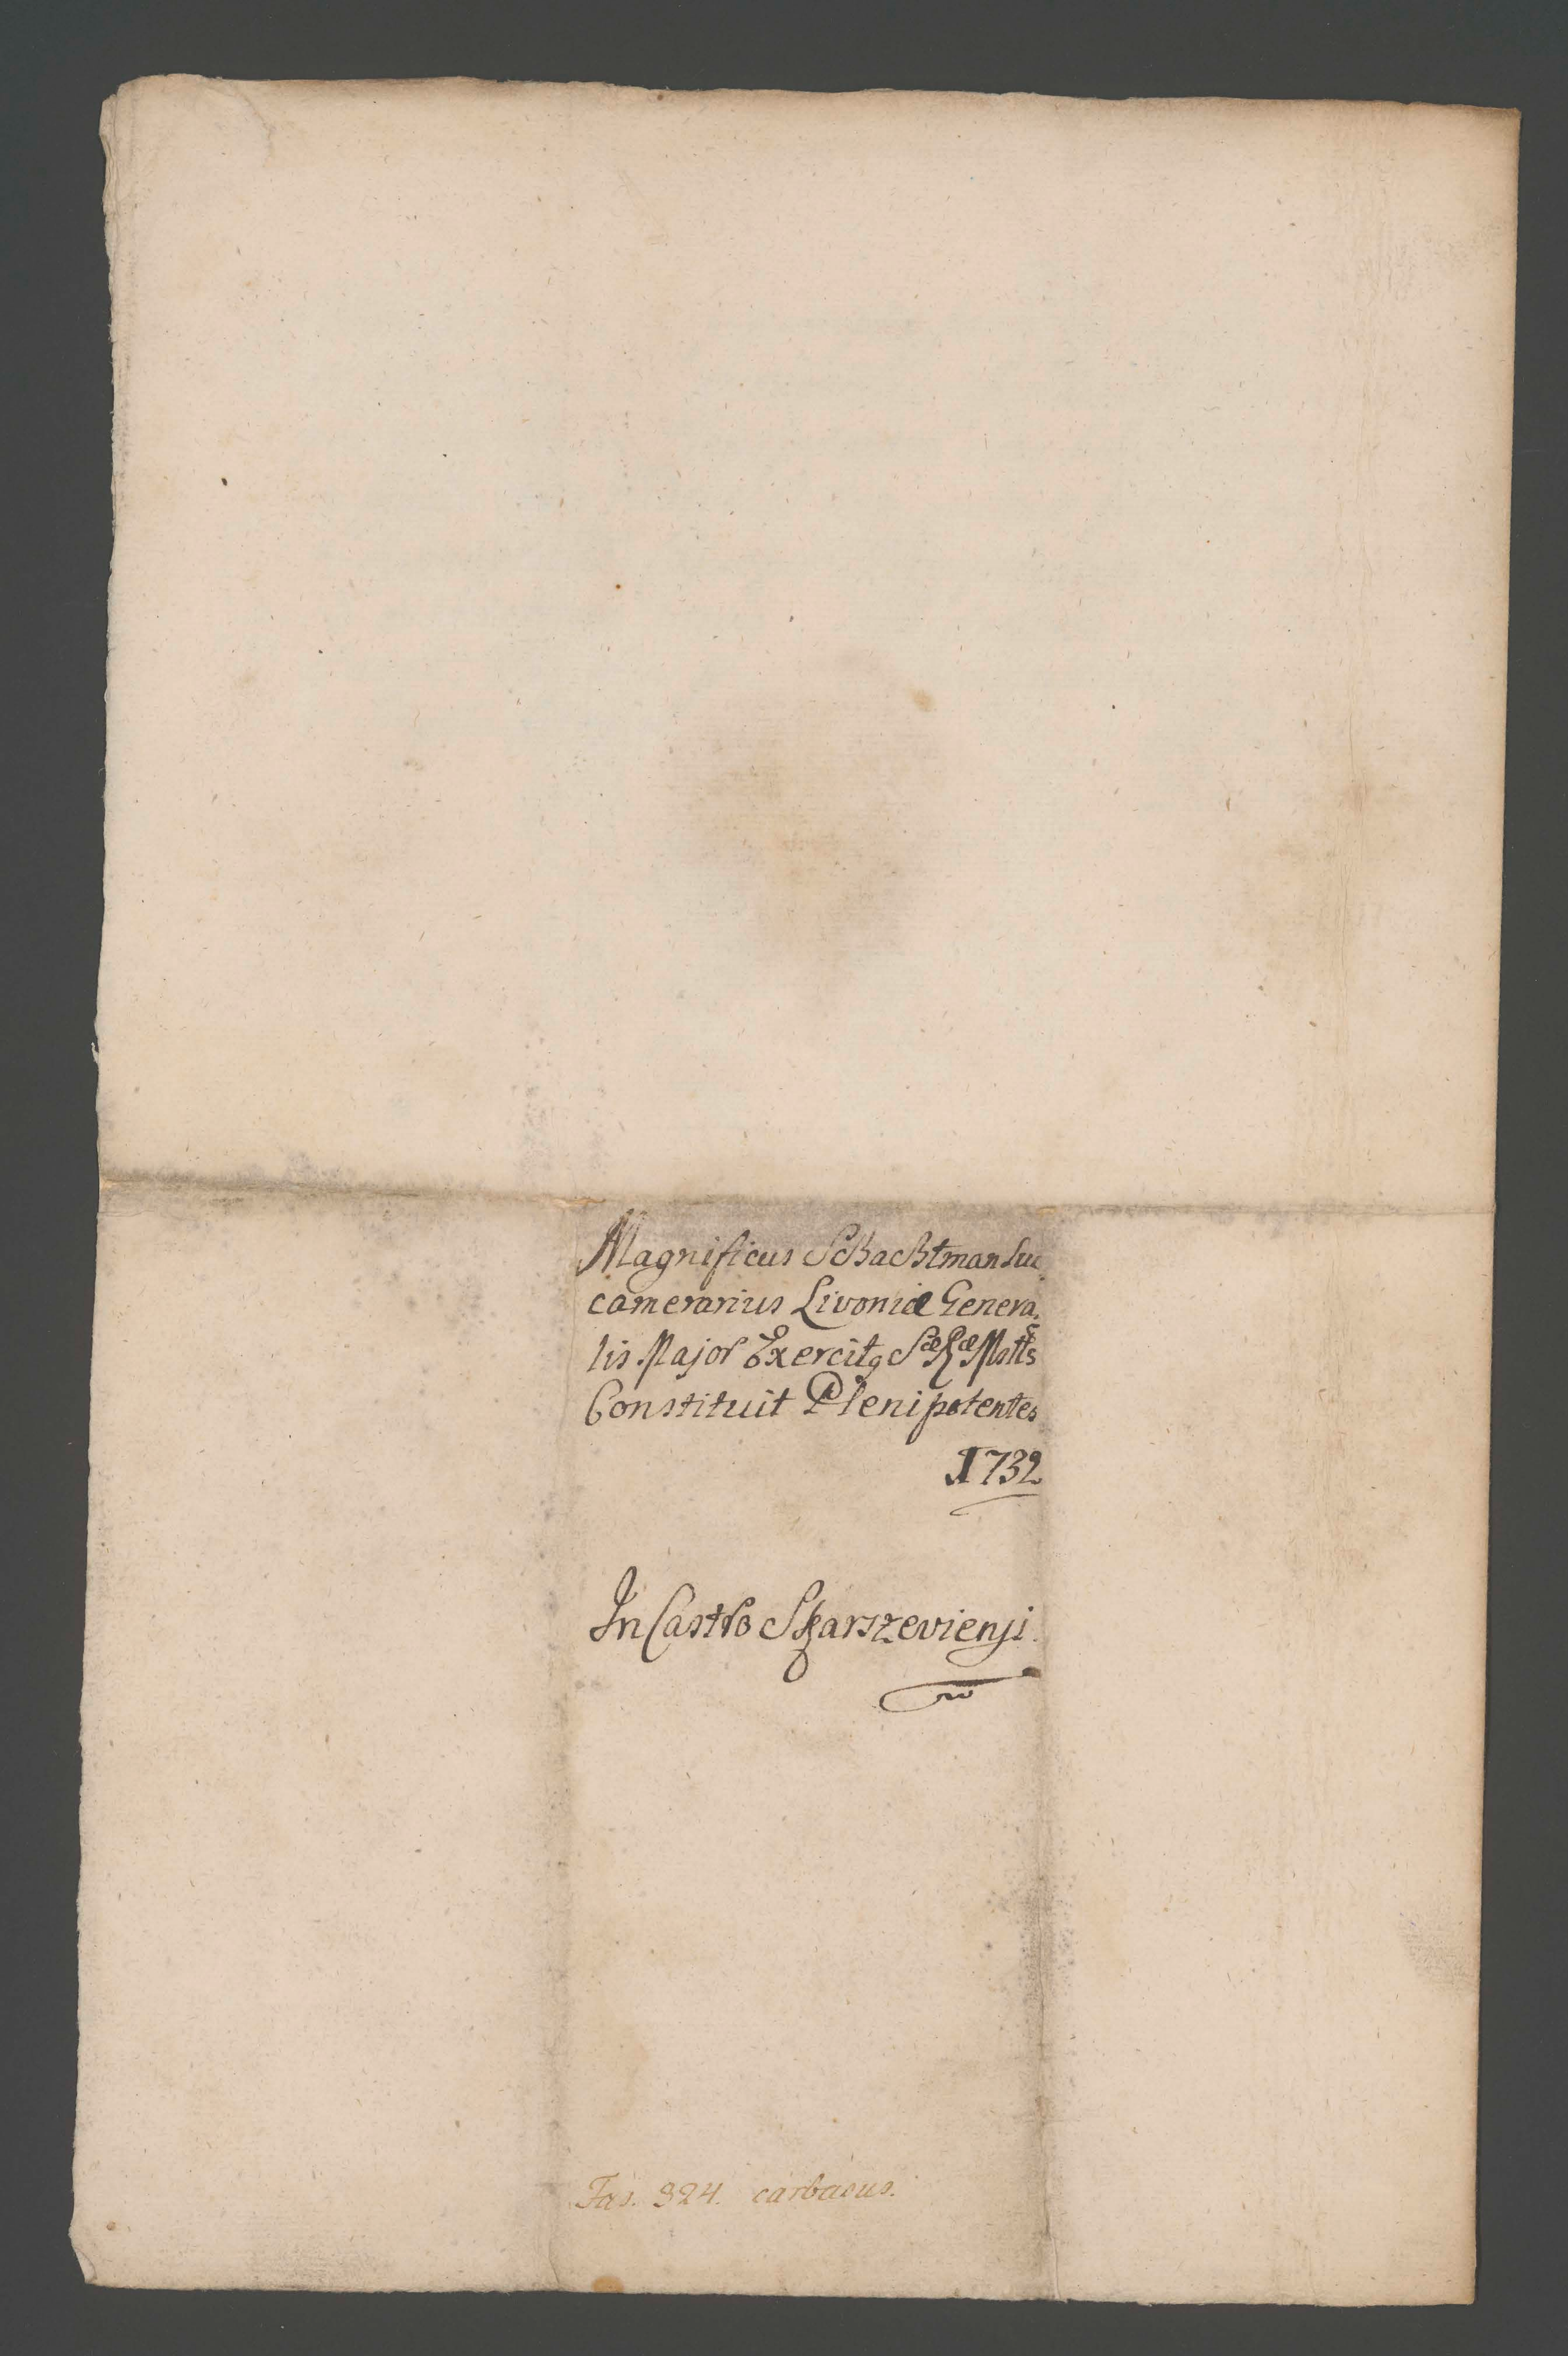 Magnificus Schachtman Suc,
camerarius Livoniæ Genera,
lis Major Exercitq Sæ Ræ Mattis
Constituit Plenipotentes
1732
In Castro Skarszeviensi
Fas. 324. carbasus.